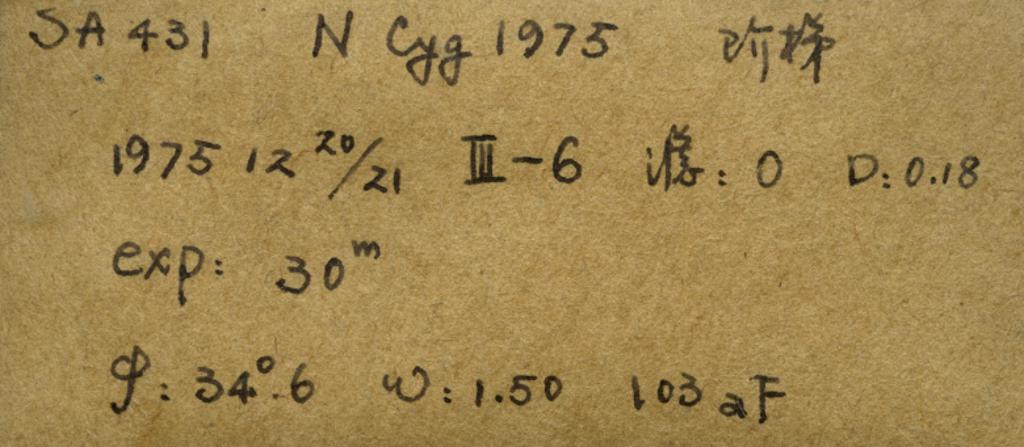 SA 431 N Cyg 1975 阶梯
1975 12 20/21 III-6 滤: 0 D: 0.18
exp: 30ᵐ
φ: 34°.6 ω: 1.50 103aF